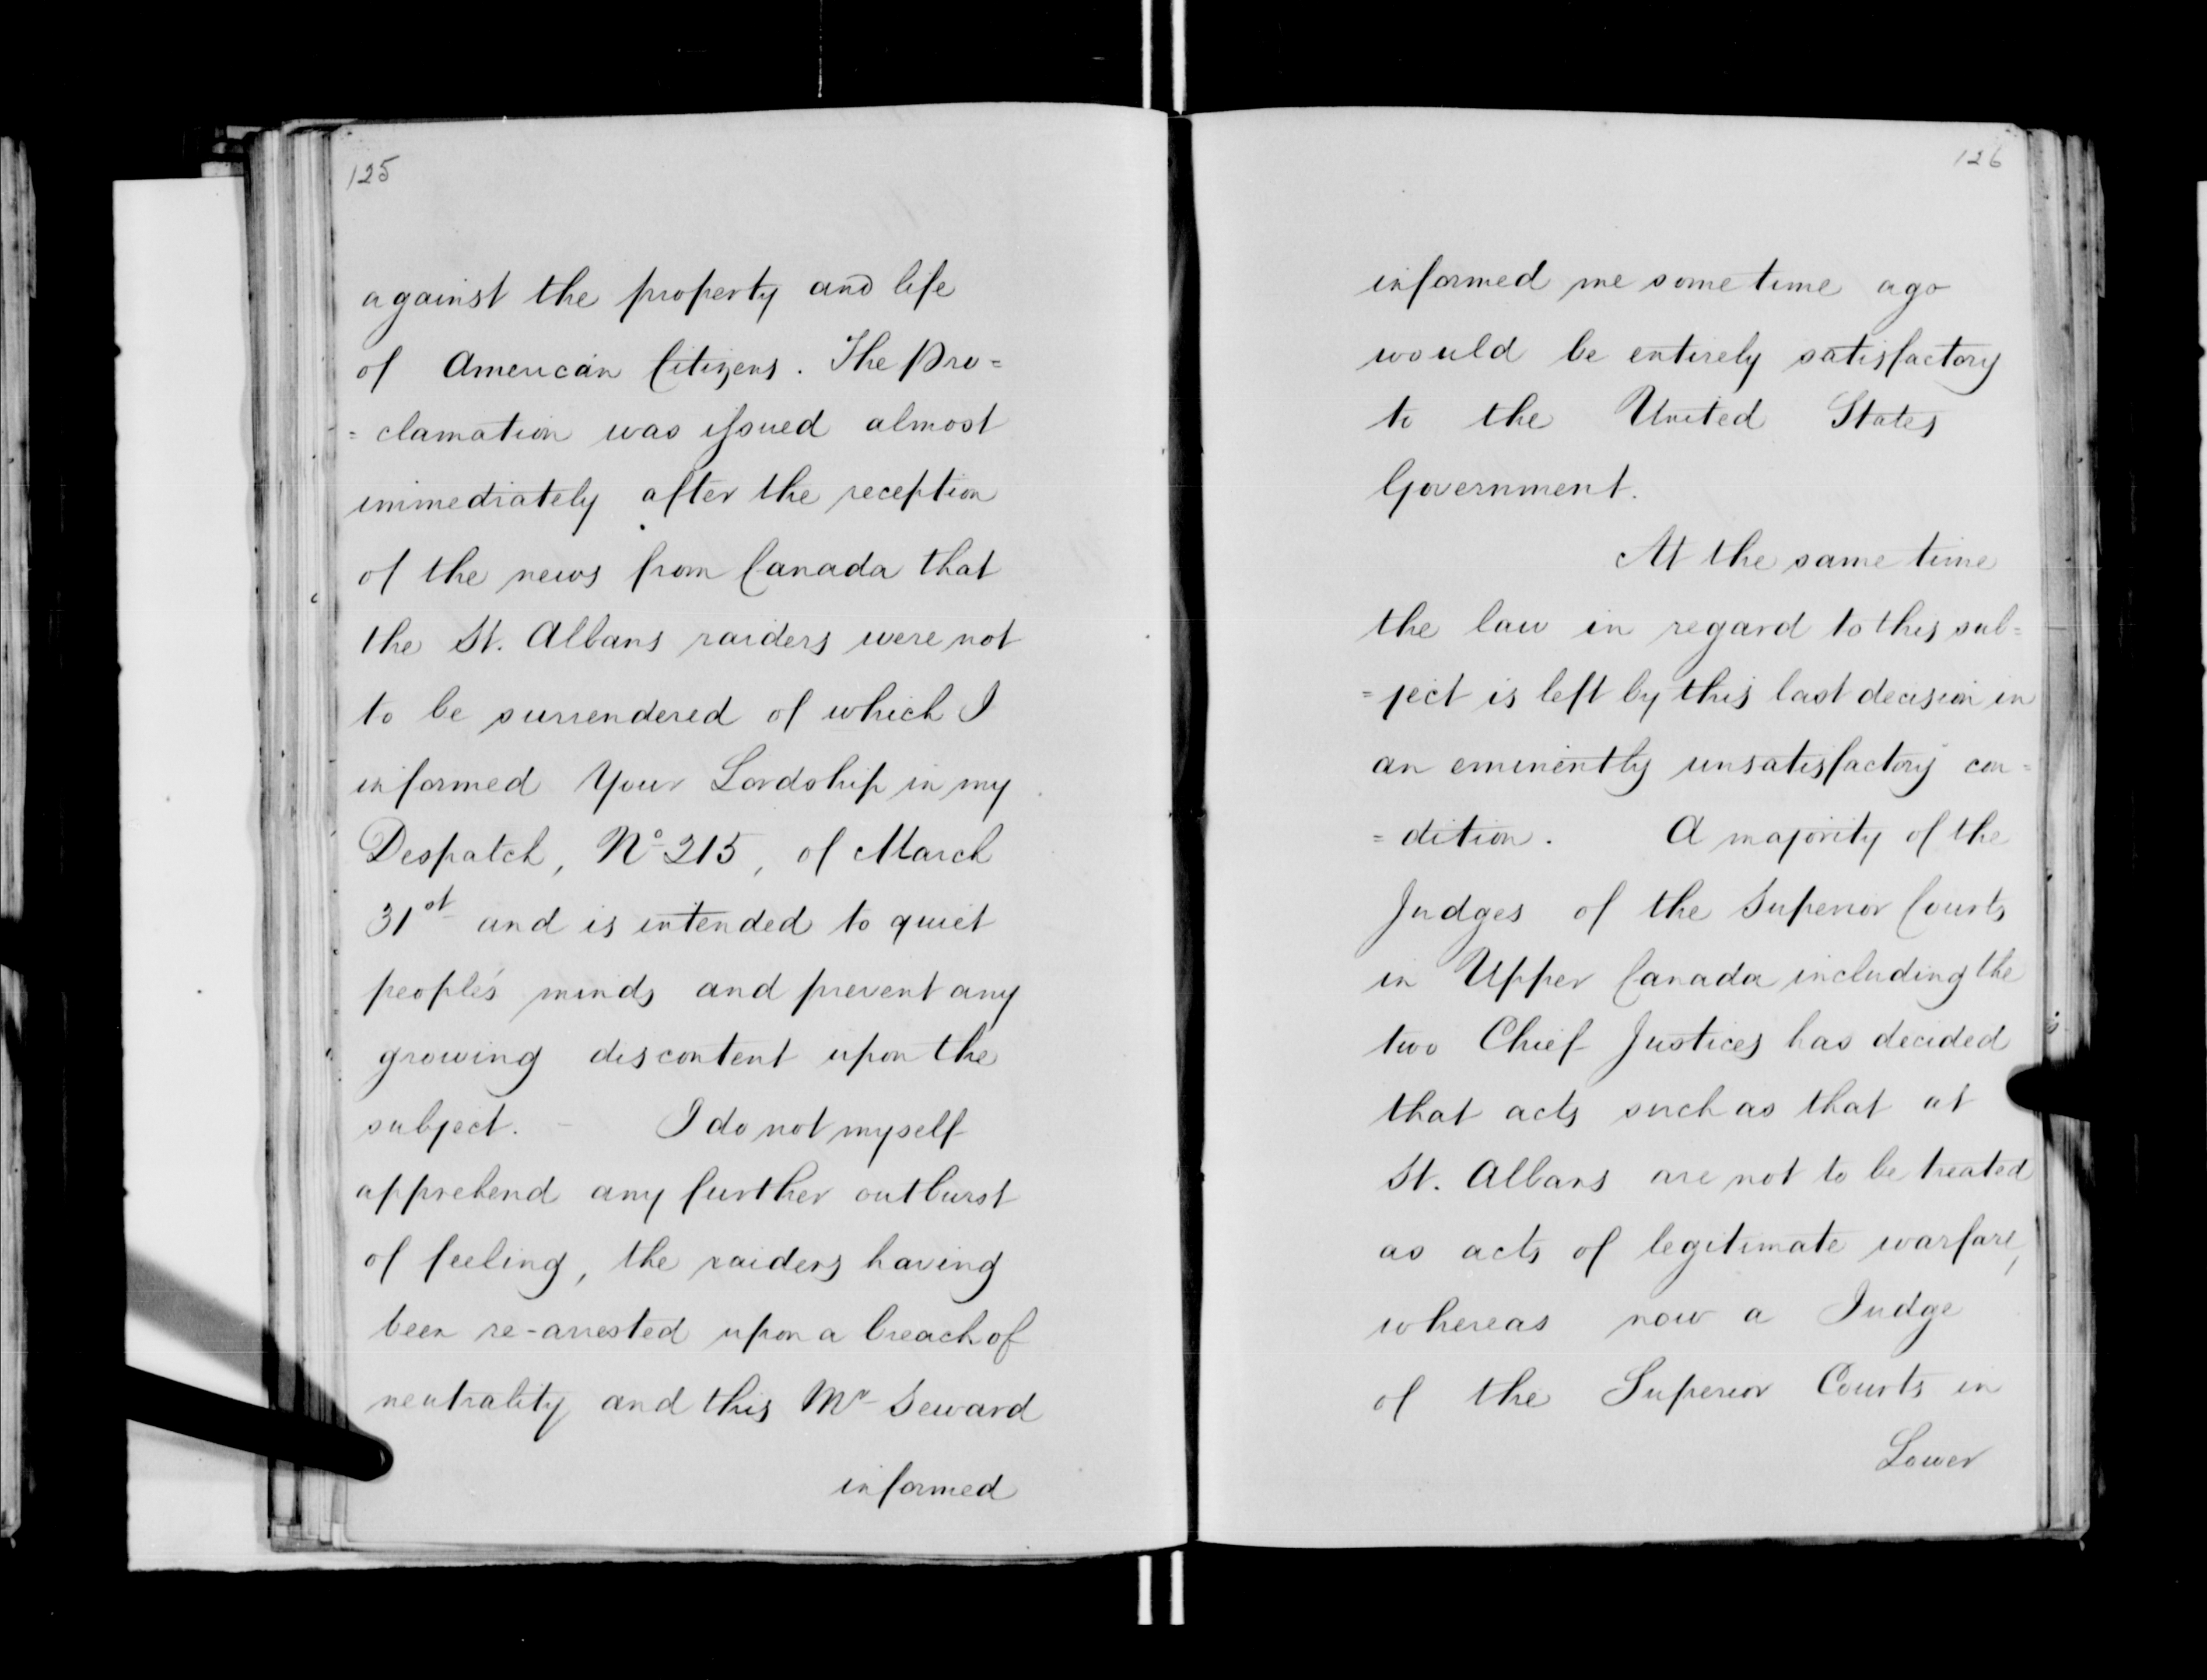 125
against the property and life
of American Citizens. The Pro=
=clamation was issued almost
immediately after the reception
of the news from Canada that
the St. Albans raiders were not
to be surrendered of which I
informed Your Lordship in my
Despatch, No 215, of March
31st and is intended to quiet
people's minds and prevent any
growing discontent upon the
subject. – I do not myself
apprehend any further outburst
of feeling, the raiders having
been re-arrested upon a breach of
neutrality and this Mr Seward
informed
126
informed me some time ago
would be entirely satisfactory
to the United States
Government.
At the same time
the law in regard to this sub=
=ject is left by this last decision in
an eminently unsatisfactory con=
=dition. A majority of the
Judges of the Superior Courts
in Upper Canada including the
two Chief Justices has decided
that acts such as that at
St. Albans are not to be treated
as acts of legitimate warfare,
whereas now a Judge
of the Superior Courts in
Lower